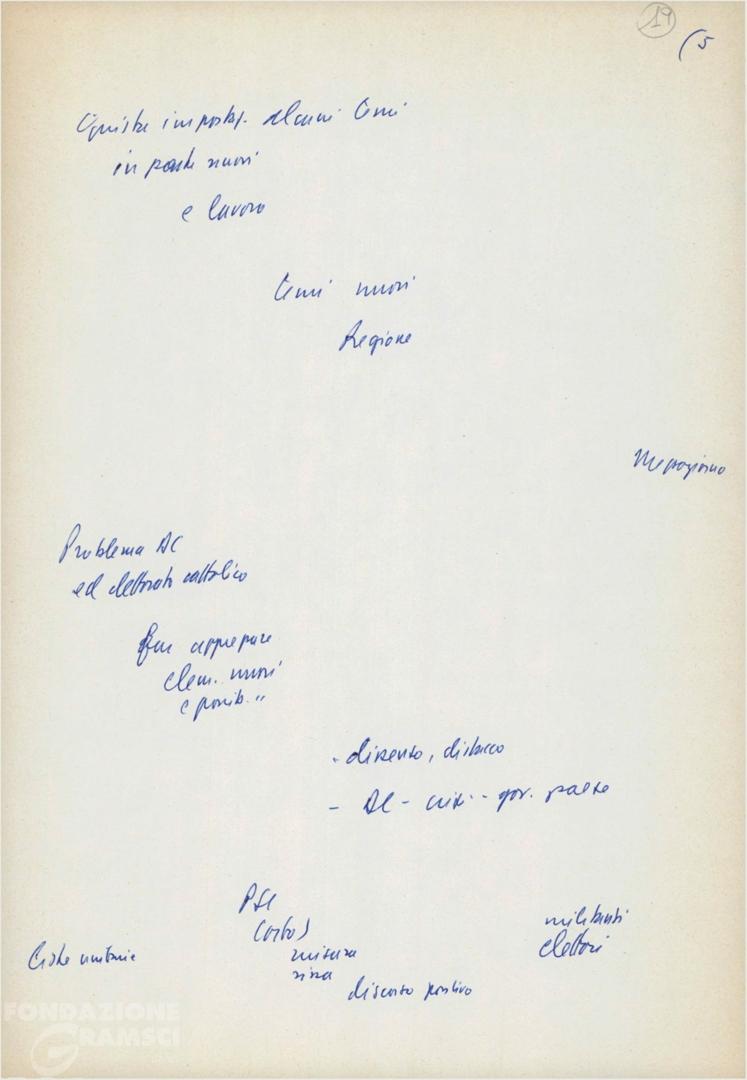 19
(5
impostaz. alcuni temi
in parte nuovi
e lavoro
temi nuovi
Regione
Mezzogiorno
Problema DC
ed elettorato cattolico
Far apprezzare
elem. nuovi
e possib. "
- dissenso, distacco
- DC - crisi - gov. paese
PSI
misura
discorso positivo
militanti
elettori
Liste unitarie
FONDAZIONE
GRAMSCI